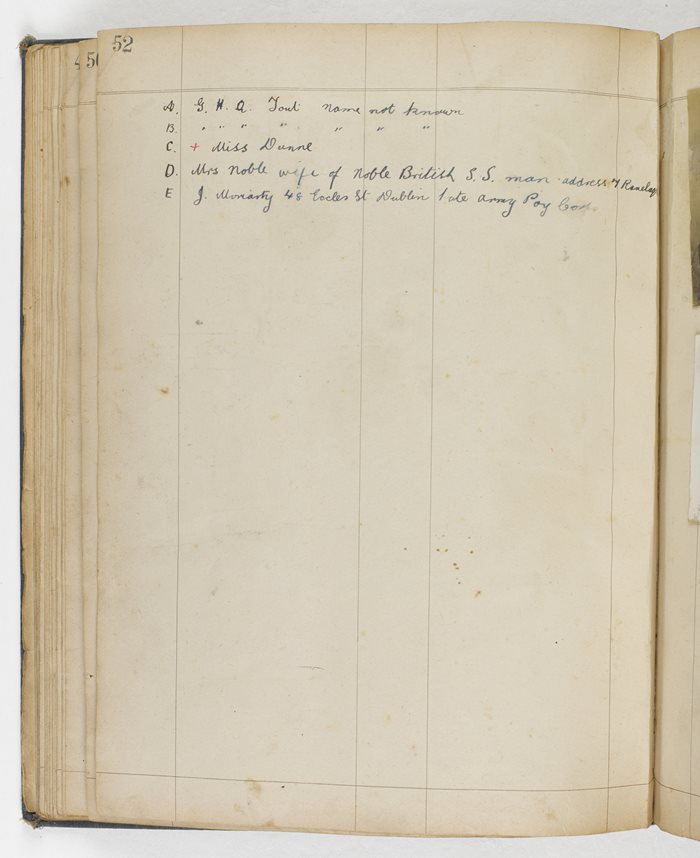 52
5
A. G. H. Q. Tout name not known
B. " " " " " " "
C. + Miss Dunne
D. Mrs Noble wife of Noble British S. S. man address 7 Ranelagh
E J. Moriarty 48 Eccles St Dublin late Army Pay Corps